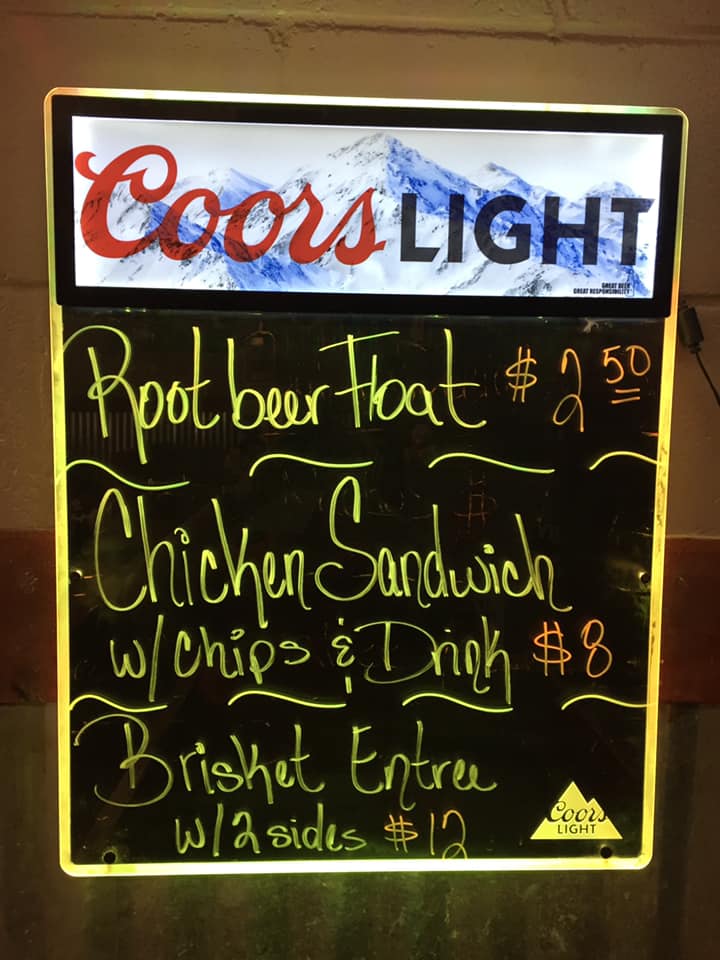 Coors LIGHT
GREAT BEER
GREAT RESPONSIBILITY
Root beer Float $2.50
Chicken Sandwich
w/chips & Drink $8
Brisket Entree
w/2 sides $12
Coors
LIGHT